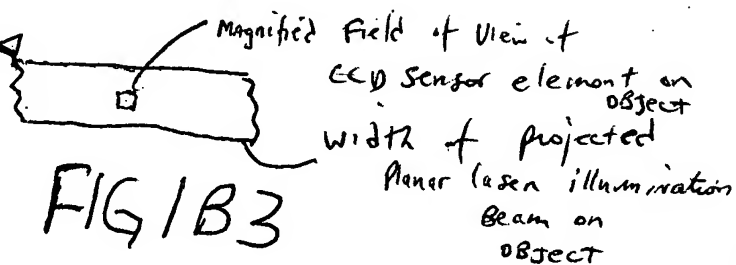 Magnified Field of View of
CCD Sensor element on
OBJECT
width of projected
Planar laser illumination
Beam on
OBJECT
FIG 1B3